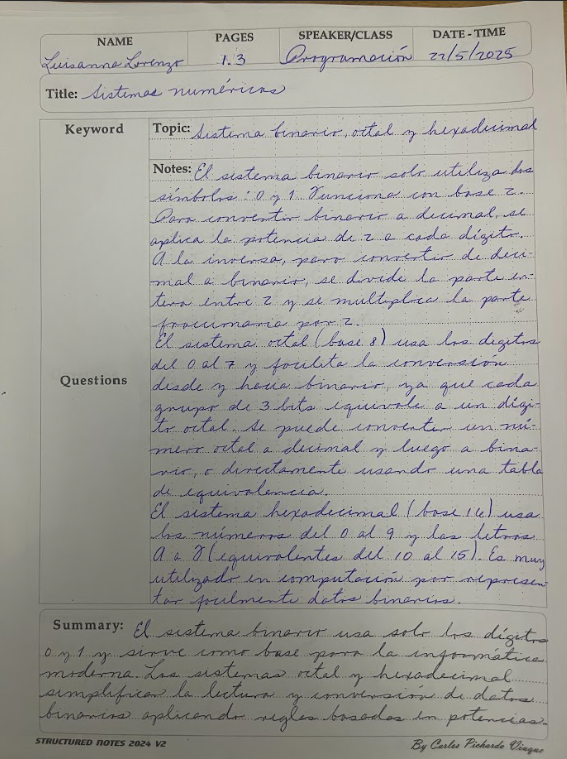 NAME PAGES SPEAKER/CLASS DATE - TIME
Luisanna Lorenzo 1.3 Programación 22/5/2025
Title: Sistemas numéricos
Keyword Topic: Sistema binario, octal y hexadecimal
Notes: El sistema binario solo utiliza dos
símbolos: 0 y 1. Funciona con base 2.
Para convertir binario a decimal, se
aplica la potencia de 2 a cada dígito.
A la inversa, para convertir de deci-
mal a binario, se divide la parte en-
tera entre 2 y se multiplica la parte
fraccionaria por 2.
El sistema octal (base 8) usa los dígitos
del 0 al 7 y facilita la conversión
Questions desde y hacia binario, ya que cada
grupo de 3 bits equivale a un dígi-
to octal. Se puede convertir un nú-
mero octal a decimal y luego a bina-
rio, o directamente usando una tabla
de equivalencia.
El sistema hexadecimal (base 16) usa
los números del 0 al 9 y las letras
A a F (equivalentes del 10 al 15). Es muy
utilizado en computación por represen
tar facilmente datos binarios.
Summary: El sistema binario usa solo los dígitos
0 y 1 y sirve como base para la informática
moderna. Los sistemas octal y hexadecimal
simplifican la lectura y conversión de datos
binarios aplicando reglas basadas en potencias.
STRUCTURED NOTES 2024 V2 By Carlos Pichardo Viuque